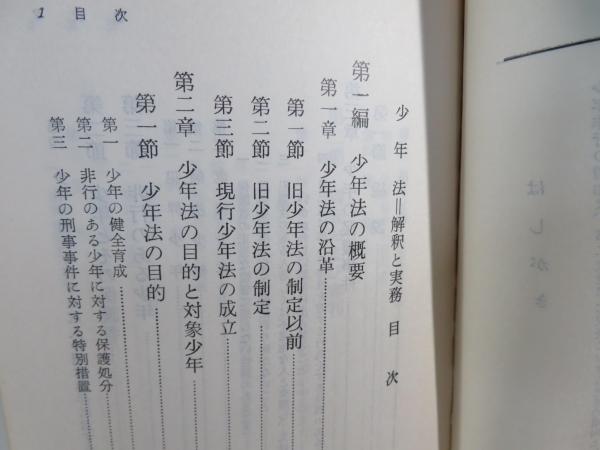 少年法＝解釈と実務 目次
第一編 少年法の概要
第一章 少年法の沿革
第一節 旧少年法の制定以前
第二節 旧少年法の制定
第三節 現行少年法の成立
第二章 少年法の目的と対象少年
第一節 少年法の目的
第一 少年の健全育成
第二 非行のある少年に対する保護処分
第三 少年の刑事事件に対する特別措置
1 目次
はしがき